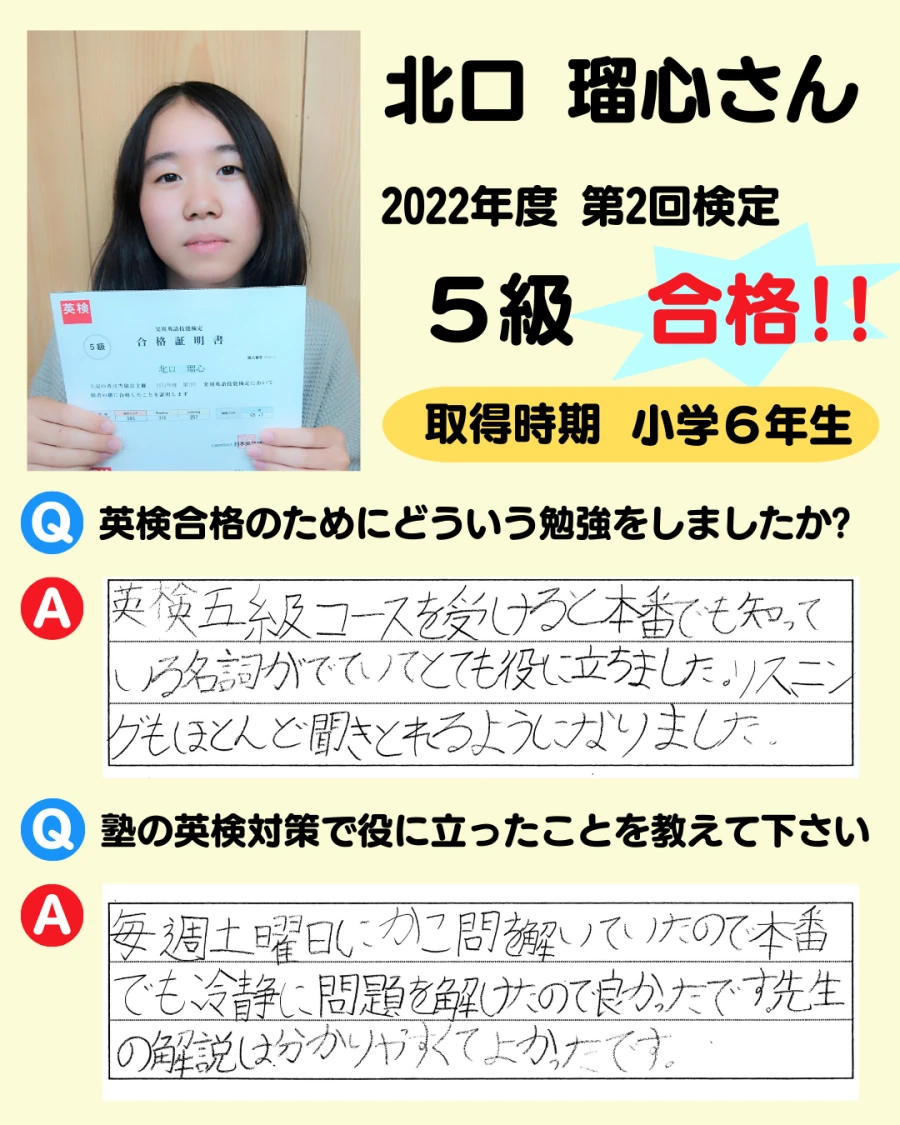 北口 瑠心さん
2022年度 第2回検定
5級 合格!!
取得時期 小学6年生
英検
実用英語技能検定
5級
合格証明書
北口 瑠心
Q 英検合格のためにどういう勉強をしましたか?
A 英検五級コースを受けると本番でも知って
いる名詞がでていてとても役に立ちました。リスニン
グもほとんど聞きとれるようになりました。
Q 塾の英検対策で役に立ったことを教えて下さい
A 毎週土曜日にかこ問を解いていたので本番
でも冷静に問題を解けたので良かったです。先生
の解説は分かりやすくてよかったです。